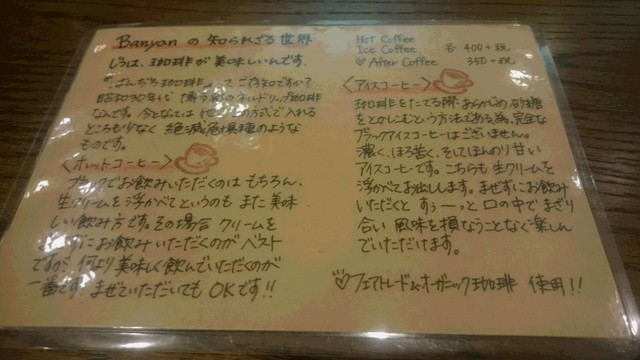 Banyan の 知られざる世界
じつは、珈琲が美味しいんです。
"ぽんぢゅ珈琲"って ご存知ですか？
昭和30年代、博多発のネルドリップ珈琲
なんです。今となっては 代々の方式で入れる
ところも少なく 絶滅危惧種のような
ものです。
〈ホットコーヒー〉
ブラックでお飲みいただくのはもちろん、
生クリームを浮かべてというのもまた美味
しい飲み方です。その場合 クリームを
にお飲みいただくのがベスト
ですが、何より美味しく飲んでいただくのが
一番です。まぜていただいてもOKです!!
Hot Coffee
Ice Coffee 各 400+税
♡ After Coffee 350+税
〈アイスコーヒー〉
珈琲をたてる際、あらかじめ、砂糖
をとかしこむという方法である為、完全な
ブラックアイスコーヒーはございません。
濃く、ほろ苦く、そしてほんのり甘い
アイスコーヒーです。こちらも生クリームを
浮かべてお出しします。まぜずにお飲み
いただくと すぅーっと口の中でまざり
合い 風味を損なうことなく楽しん
でいただけます。
♡フェアトレード&オーガニック珈琲 使用!!